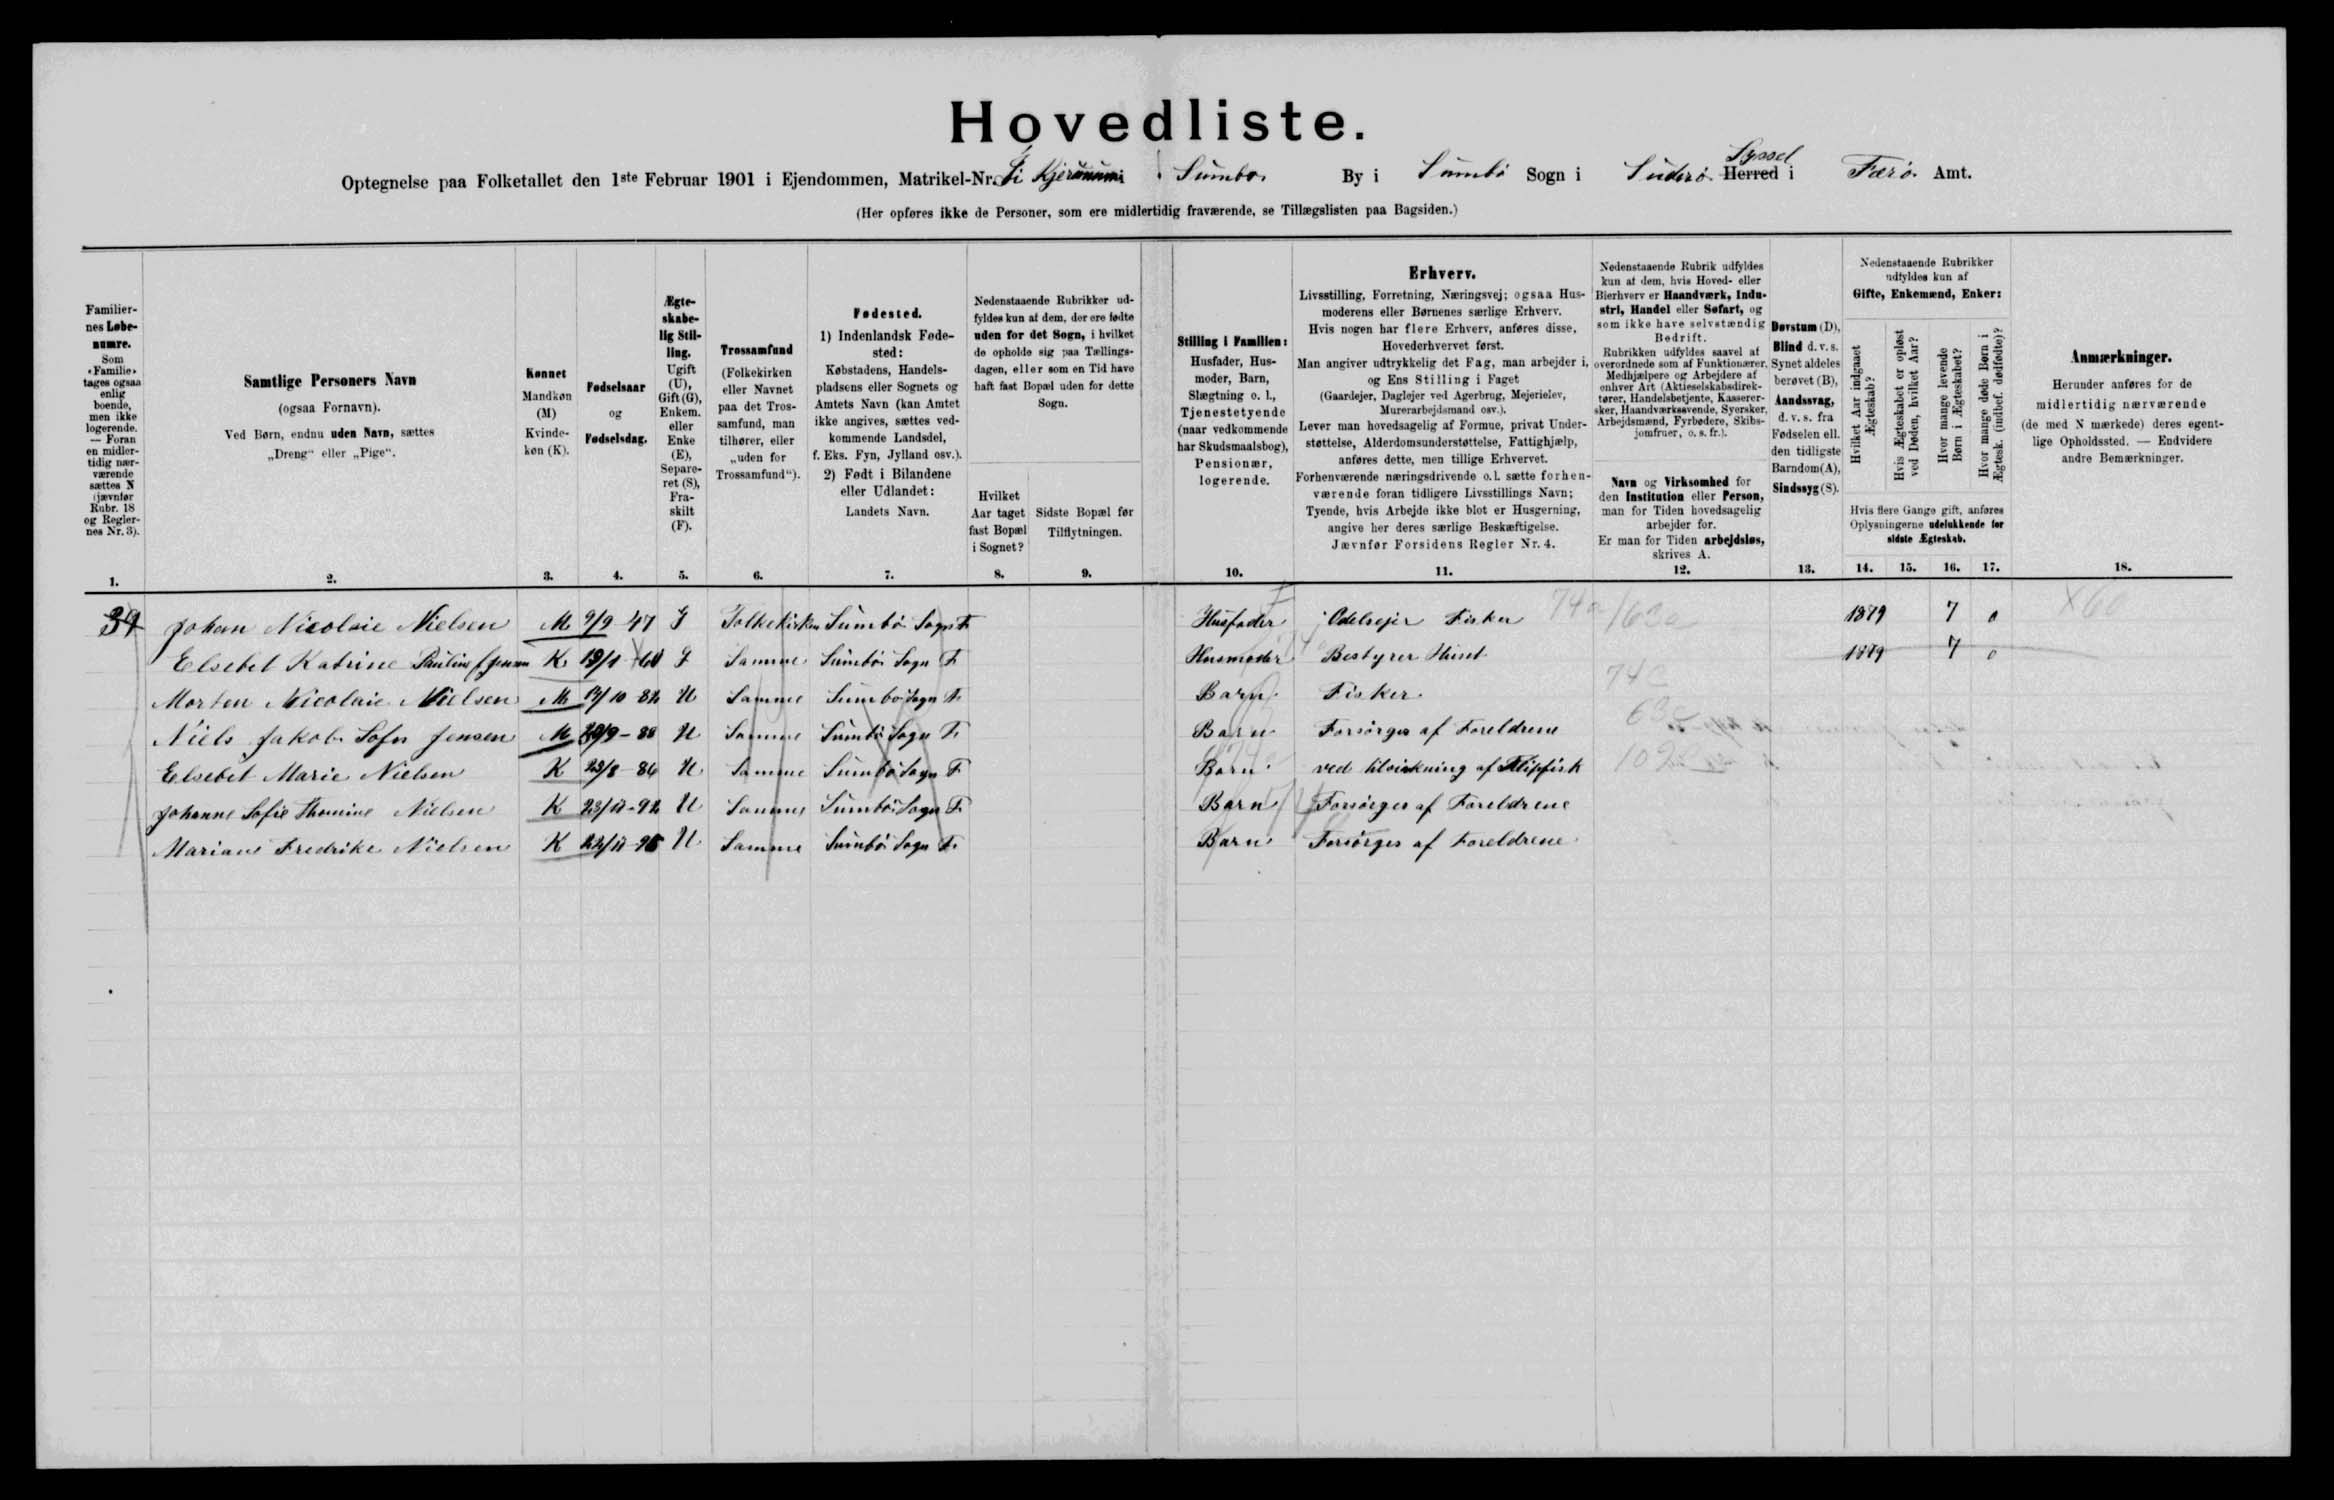 Hovedliste.
Optegnelse paa Folketallet den 1ste Februar 1901 i Ejendommen, Matrikel-Nr. Sumbø By i Sumbø Sogn i Suderø Herred i Syssel Færø Amt.
(Her opføres ikke de Personer, som ere midlertidig fraværende, se Tillægslisten paa Bagsiden.)
Familier-
nes Løbe-
numre.
Som
«Familie»
tages ogsaa
enlig
boende,
men ikke
logerende.
— Foran
en midler-
tidig nær-
værende
sættes N
(jævnfør
Rubr. 18
og Regler-
nes Nr. 3).
1.
Samtlige Personers Navn
(ogsaa Fornavn).
Ved Børn, endnu uden Navn, sættes
„Dreng" eller „Pige".
2.
Kønnet
Mandkøn
(M)
Kvinde-
køn (K).
3.
Fødselsaar
og
Fødselsdag.
4.
Ægte-
skabe-
lig Stil-
ling.
Ugift
(U),
Gift (G),
Enkem.
eller
Enke
(E),
Separe-
ret (S),
Fra-
skilt
(F).
5.
Trossamfund
(Folkekirken
eller Navnet
paa det Tros-
samfund, man
tilhører, eller
„uden for
Trossamfund").
6.
Fødested.
1) Indenlandsk Føde-
sted:
Købstadens, Handels-
pladsens eller Sognets og
Amtets Navn (kan Amtet
ikke angives, sættes ved-
kommende Landsdel,
f. Eks. Fyn, Jylland osv.).
2) Født i Bilandene
eller Udlandet:
Landets Navn.
7.
Nedenstaaende Rubrikker ud-
fyldes kun af dem, der ere fødte
uden for det Sogn, i hvilket
de opholde sig paa Tællings-
dagen, eller som en Tid have
haft fast Bopæl uden for dette
Sogn.
Hvilket
Aar taget
fast Bopæl
i Sognet?
8.
Sidste Bopæl før
Tilflytningen.
9.
Stilling i Familien:
Husfader, Hus-
moder, Barn,
Slægtning o. l.,
Tjenestetyende
(naar vedkommende
har Skudsmaalsbog),
Pensionær,
logerende.
10.
Erhverv.
Livsstilling, Forretning, Næringsvej; ogsaa Hus-
moderens eller Børnenes særlige Erhverv.
Hvis nogen har flere Erhverv, anføres disse,
Hovederhvervet først.
Man angiver udtrykkelig det Fag, man arbejder i,
og Ens Stilling i Faget
(Gaardejer, Daglejer ved Agerbrug, Mejerielev,
Murerarbejdsmand osv.).
Lever man hovedsagelig af Formue, privat Under-
støttelse, Alderdomsunderstøttelse, Fattighjælp,
anføres dette, men tillige Erhvervet.
Forhenværende næringsdrivende o. l. sætte forhen-
værende foran tidligere Livsstillings Navn;
Tyende, hvis Arbejde ikke blot er Husgerning,
angive her deres særlige Beskæftigelse.
Jævnfør Forsidens Regler Nr. 4.
11.
Nedenstaaende Rubrik udfyldes
kun af dem, hvis Hoved- eller
Bierhverv er Haandværk, Indu-
stri, Handel eller Søfart, og
som ikke have selvstændig
Bedrift.
Rubrikken udfyldes saavel af
overordnede som af Funktionærer,
Medhjælpere og Arbejdere af
enhver Art (Aktieselskabsdirek-
tører, Handelsbetjente, Kasserer-
sker, Haandværkssvende, Syersker,
Arbejdsmænd, Fyrbødere, Skibs-
jomfruer, o. s. fr.).
Navn og Virksomhed for
den Institution eller Person,
man for Tiden hovedsagelig
arbejder for.
Er man for Tiden arbejdsløs,
skrives A.
12.
Døvstum (D),
Blind d. v. s.
Synet aldeles
berøvet (B),
Aandssvag,
d. v. s. fra
Fødselen ell.
den tidligste
Barndom (A),
Sindssyg (S).
13.
Nedenstaaende Rubrikker
udfyldes kun af
Gifte, Enkemænd, Enker:
Hvilket Aar indgaaet
Ægteskab?
Hvis Ægteskabet er opløst
ved Døden, hvilket Aar?
Hvor mange levende
Børn i Ægteskabet?
Hvor mange døde Børn i
Ægtesk. (indbef. dødfødte)?
Hvis flere Gange gift, anføres
Oplysningerne udelukkende for
sidste Ægteskab.
14. 15. 16. 17.
Anmærkninger.
Herunder anføres for de
midlertidig nærværende
(de med N mærkede) deres egent-
lige Opholdssted. — Endvidere
andre Bemærkninger.
18.
39 Johan Nicolaie Nielsen M 9/9-47 G Folkekirken Sumbø Sogn F. Husfader Odelsejer Fisker 74a 63a 1879 7 0 X60
Elsebet Katrine Pauline K 19/1-60 G Samme Sumbø Sogn F. Husmoder Bestyrer Huset 1879 7 0
Morten Nicolaie Nielsen M U Samme Sumbø Sogn F. Barn Fisker 74c
Niels Jakob Sofus Jensen M U Samme Sumbø Sogn F. Barn Forsørges af Foreldrene
Elsebet Marie Nielsen K 23/8-86 U Samme Sumbø Sogn F. Barn ved tilvirkning af Klipfisk
Johanne Sofie Thomine Nielsen K U Samme Sumbø Sogn F. Barn Forsørges af Foreldrene
Mariane Fredrike Nielsen K U Samme Sumbø Sogn F. Barn Forsørges af Foreldrene